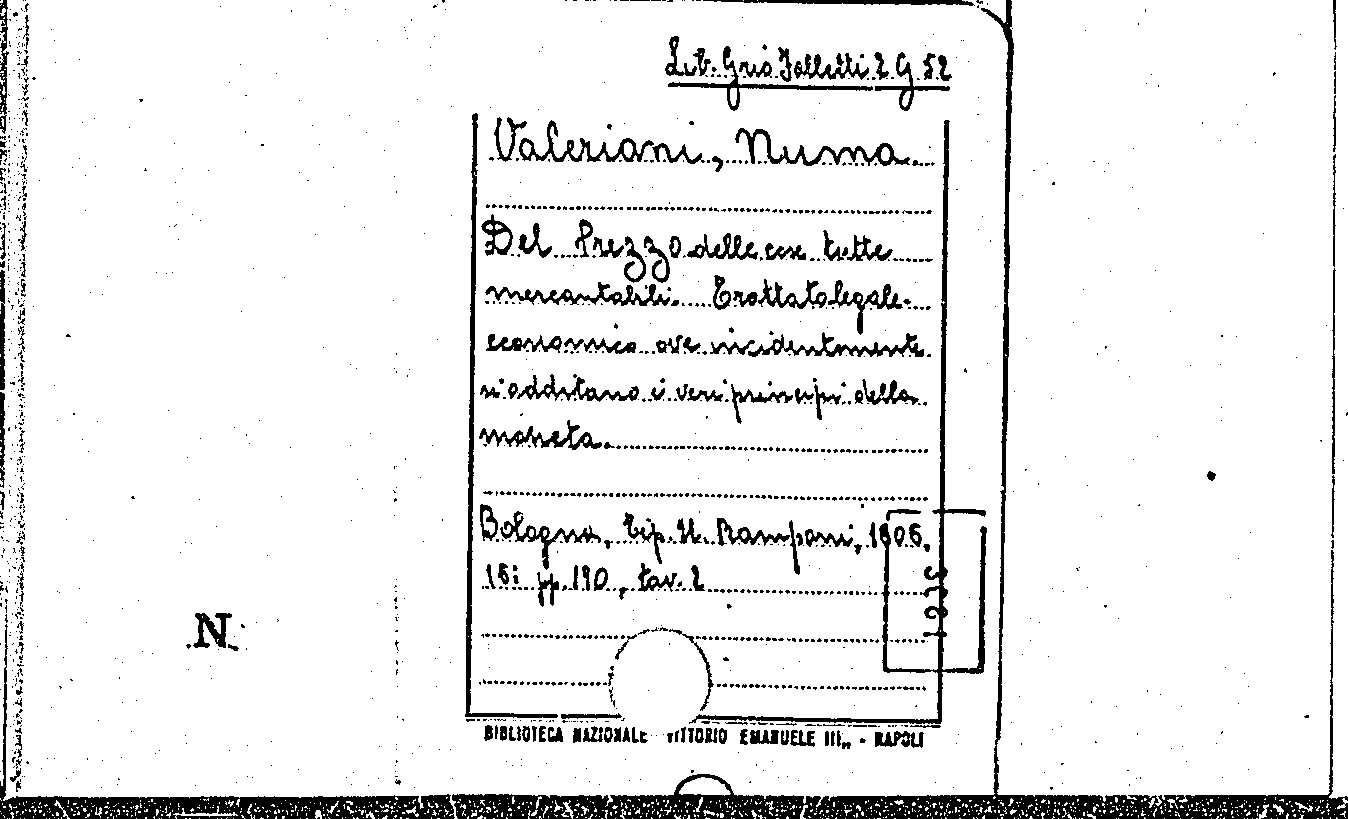 Lib. Grio Falletti 2 G 52
Valeriani, Numa.
Del Prezzo delle cose tutte
mercantabili. Trattato legale-
economico ove incidentemente
si additano i veri principi della
moneta.
Bologna, Tip. U. Rampani, 1806.
15i pp. 190, tav. 2
1806
N.
BIBLIOTECA NAZIONALE VITTORIO EMANUELE III„ - NAPOLI